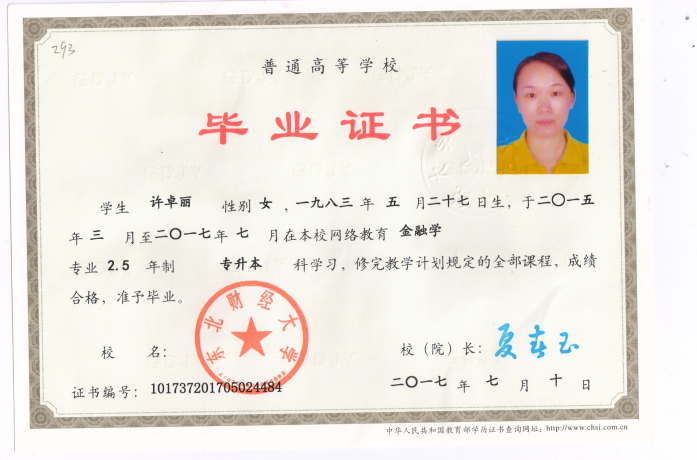 293
普通高等学校
毕业证书
学生 许卓丽 性别 女 ，一九八三 年 五 月 二十七 日生，于 二〇一五
年 三 月至 二〇一七 年 七 月在本校网络教育 金融学
专业 2.5 年制 专升本 科学习，修完教学计划规定的全部课程，成绩
合格，准予毕业。
东北财经大学
校 名： 校（院）长： 夏春玉
证书编号： 101737201705024484 二〇一七 年 七 月 十 日
中华人民共和国教育部学历证书查询网址：http://www.chsi.com.cn